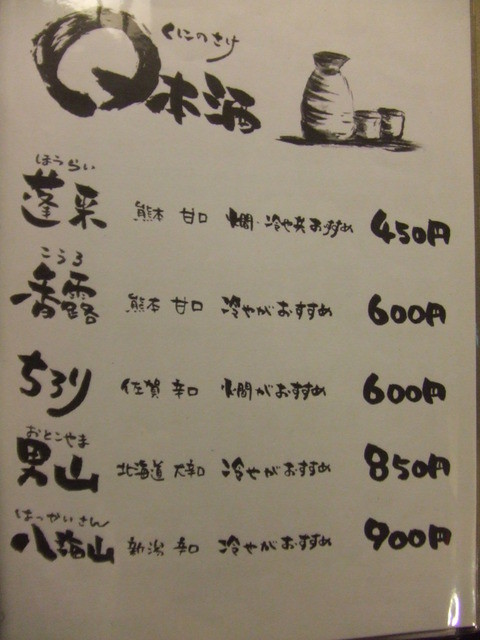 くにのさけ
日本酒
ほうらい
蓬莱 熊本 甘口 燗・冷や共おすすめ 450円
こうろ
香露 熊本 甘口 冷やがおすすめ 600円
ちろり 佐賀 辛口 燗がおすすめ 600円
おとこやま
男山 北海道 大辛口 冷やがおすすめ 850円
はっかいさん
八海山 新潟 辛口 冷やがおすすめ 900円